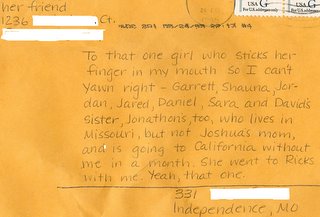 her friend
1236 Ct.
USA
G
For U.S. addresses only
USA
G
For U.S. addresses only
To that one girl who sticks her
finger in my mouth so I can't
yawn right - Garrett, Shauna, Jor-
dan, Jared, Daniel, Sara and David's
sister, Jonathon's, too, who lives in
Missouri, but not Joshua's mom,
and is going to California without
me in a month. She went to Ricks
with me. Yeah, that one.
331
Independence, MO